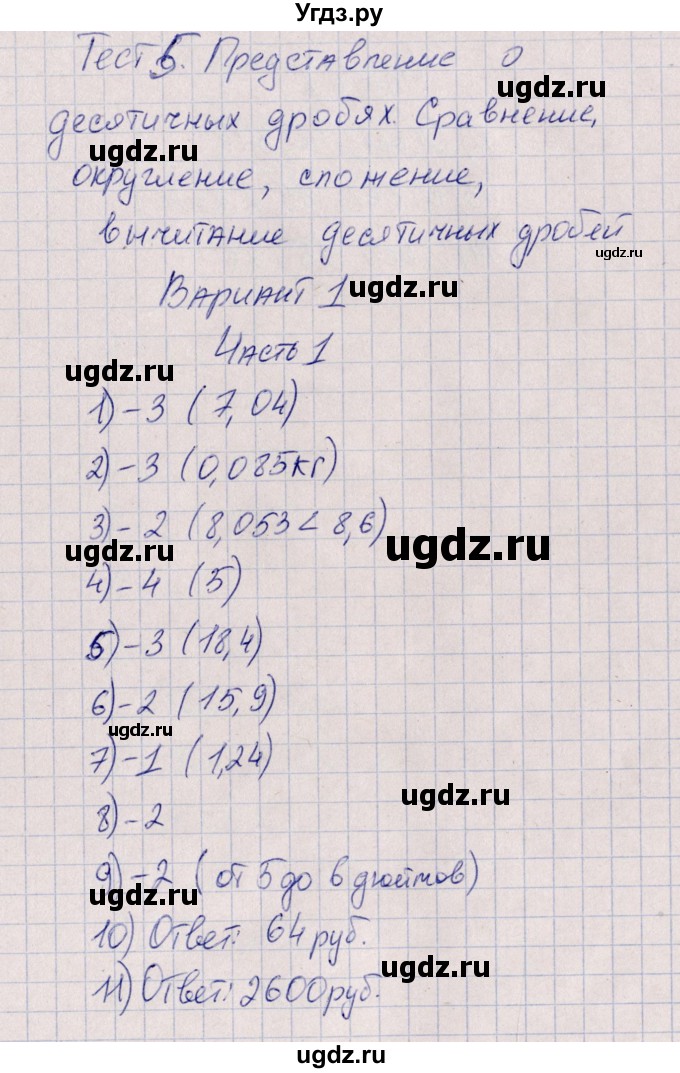 Угдз.ру
Тест 5. Представление о
десятичных дробях. Сравнение,
округление, сложение,
вычитание десятичных дробей
Вариант 1
Часть 1
1) - 3 (7,04)
2) - 3 (0,085кг)
3) - 2 (8,053 < 8,6)
4) - 4 (5)
5) - 3 (18,4)
6) - 2 (15,9)
7) - 1 (1,24)
8) - 2
9) - 2 (от 5 до 6 дюймов)
10) Ответ: 64 руб.
11) Ответ: 2600 руб.
ugdz.ru
ugdz.ru
ugdz.ru
ugdz.ru
ugdz.ru
ugdz.ru
ugdz.ru
ugdz.ru
ugdz.ru
ugdz.ru
ugdz.ru
ugdz.ru